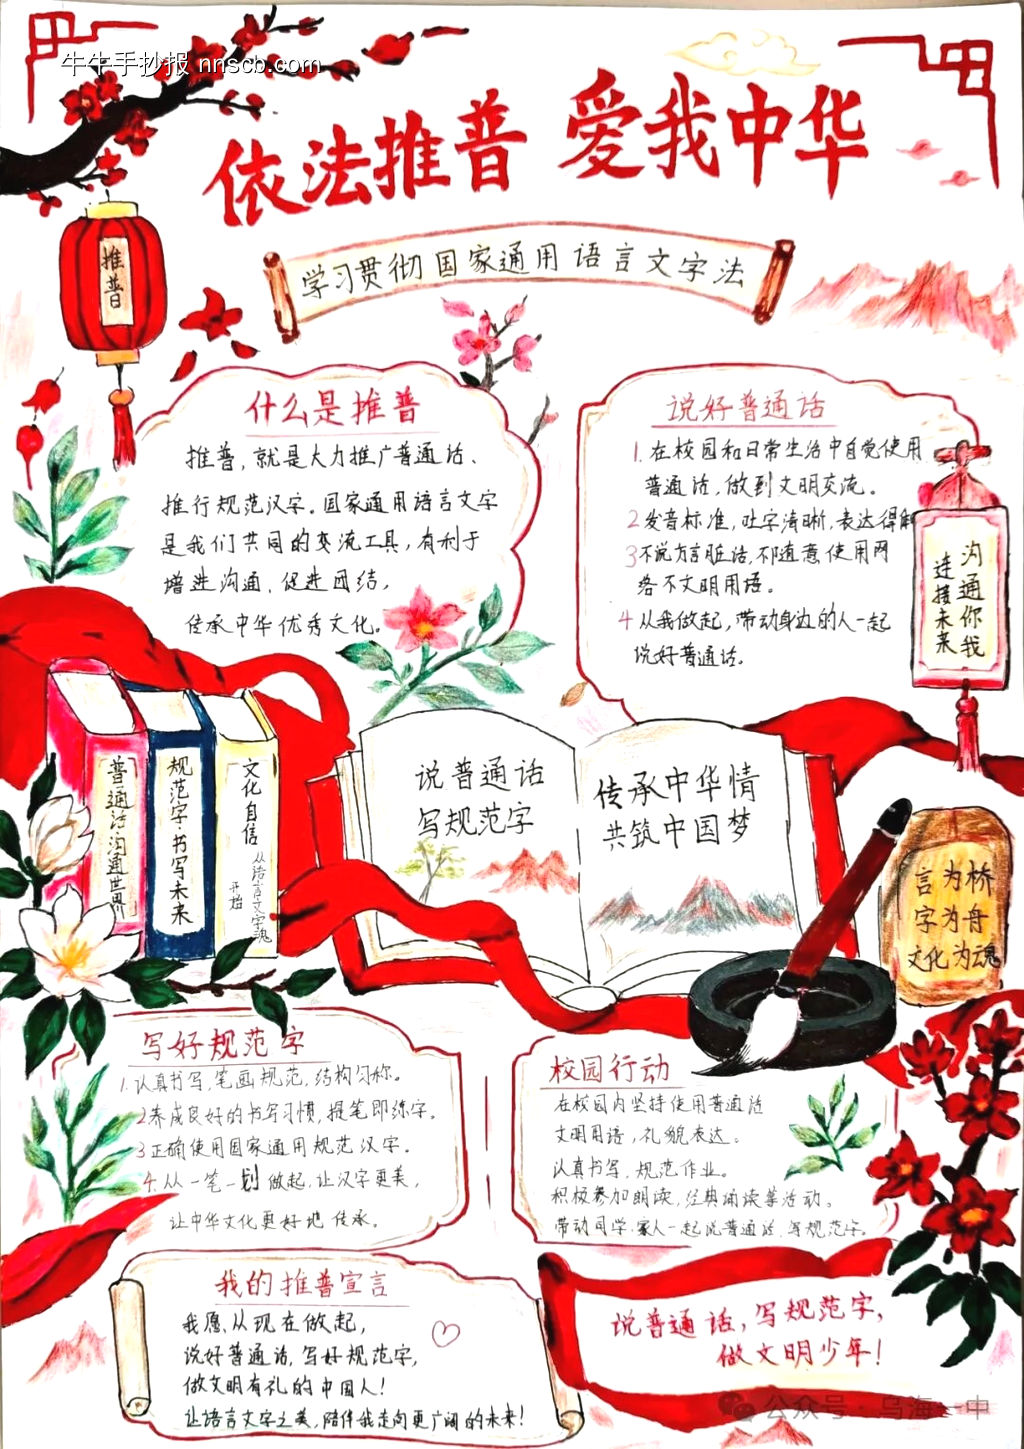 牛牛手抄报 nnscb.com
依法推普 爱我中华
学习贯彻国家通用语言文字法
推普
什么是推普
推普，就是大力推广普通话、
推行规范汉字。国家通用语言文字
是我们共同的交流工具，有利于
增进沟通，促进团结，
传承中华优秀文化。
说好普通话
1.在校园和日常生活中自觉使用
普通话，做到文明交流。
2发音标准，吐字清晰，表达得体
3不说方言脏话，不随意使用网
络不文明用语。
4从我做起，带动身边的人一起
说好普通话。
沟通你我
连接未来
普通话·沟通世界
规范字·书写未来
文化自信
从语言文字魂
开始
说普通话
写规范字
传承中华情
共筑中国梦
言为桥
字为舟
文化为魂
写好规范字
1.认真书写，笔画规范，结构匀称。
2养成良好的书写习惯，提笔即练字。
3正确使用国家通用规范汉字。
4.从一笔一划做起，让汉字更美，
让中华文化更好地传承。
校园行动
在校园内坚持使用普通话
文明用语，礼貌表达。
认真书写，规范作业。
积极参加朗读，经典诵读等活动。
带动同学·家人一起说普通话，写规范字。
我的推普宣言
我愿从现在做起，
说好普通话，写好规范字，
做文明有礼的中国人！
让语言文字之美，陪伴我走向更广阔的未来！
说普通话，写规范字，
做文明少年！
公众号·乌海一中